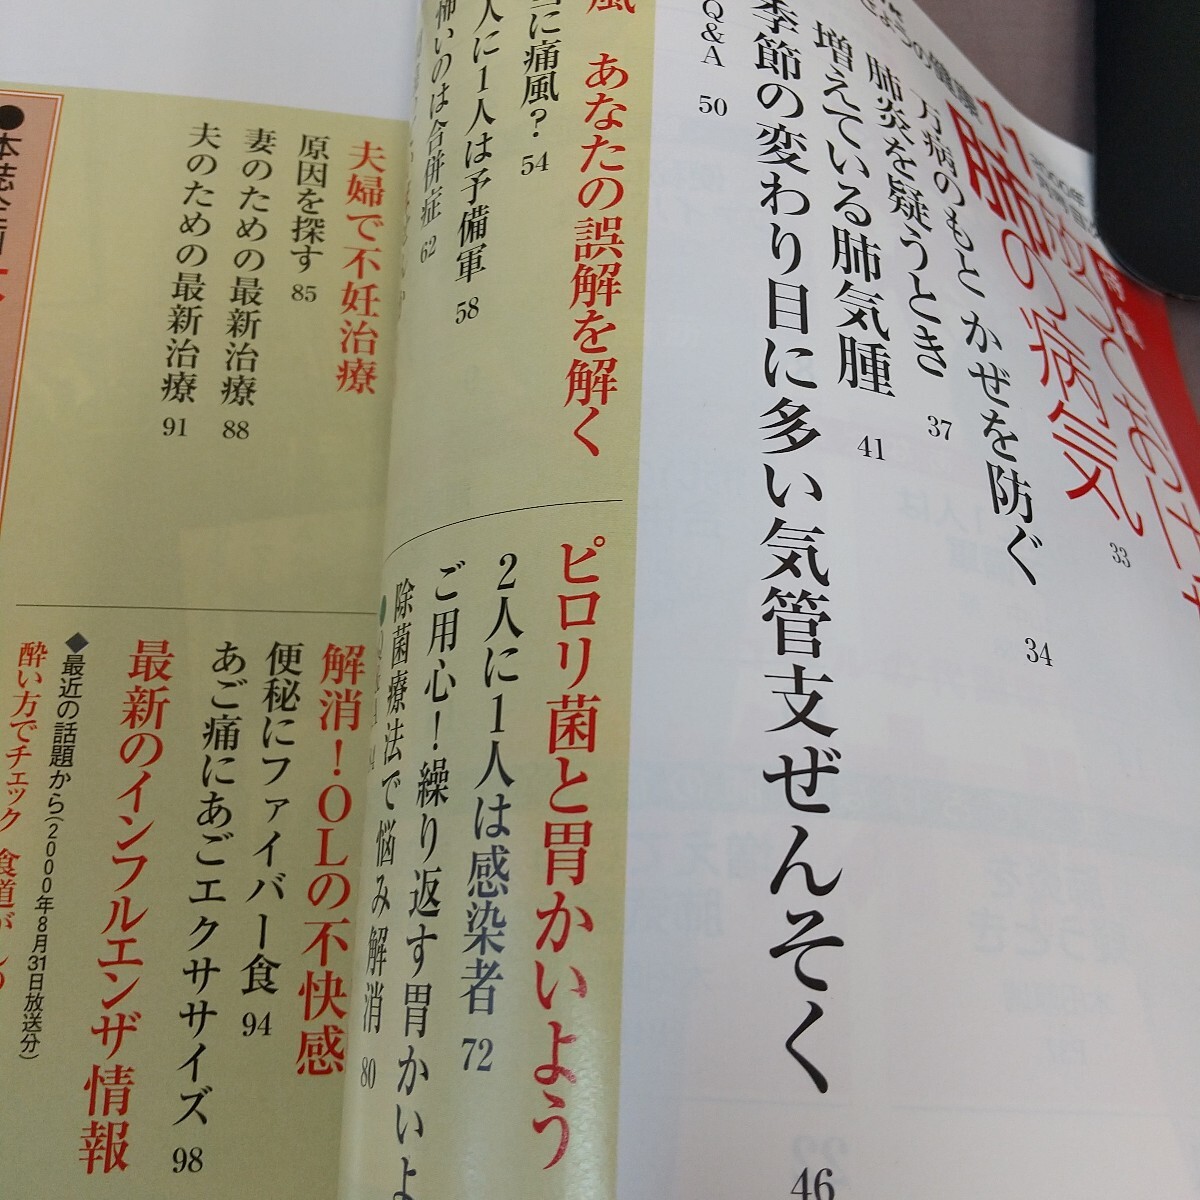 きょうの健康
11
2000年
特集
肺の病気 33
万病のもと かぜを防ぐ 34
肺炎を疑うとき 37
増えている肺気腫 41
季節の変わり目に多い気管支ぜんそく 46
Q&A 50
風 あなたの誤解を解く
に痛風? 54
人に1人は予備軍 58
怖いのは合併症 62
ピロリ菌と胃かいよう
2人に1人は感染者 72
ご用心!繰り返す胃かいよ
除菌療法で悩み解消 80
夫婦で不妊治療
原因を探す 85
妻のための最新治療 88
夫のための最新治療 91
解消!OLの不快感
便秘にファイバー食 94
あご痛にあごエクササイズ 98
最新のインフルエンザ情報
◆最近の話題から(2000年8月31日放送分)
酔い方でチェック 食道がん
●本誌